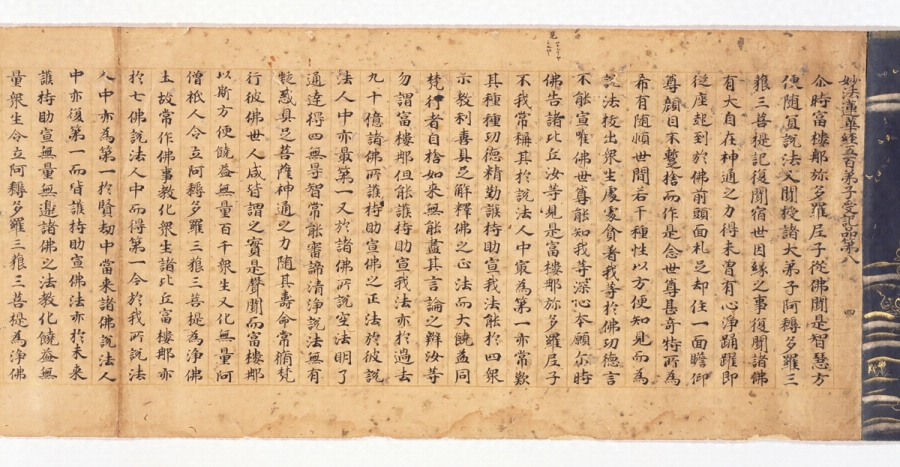 妙法蓮華經五百弟子受記品第八 四
尒時富樓那弥多羅尼子從佛聞是智慧方
便随冝說法又聞授諸大弟子阿耨多羅三
藐三菩提記復聞宿世因緣之事復聞諸佛
有大自在神通之力得未曾有心淨踊躍即
從座起到於佛前頭面礼足却住一面瞻仰
尊顔目不暫捨而作是念世尊甚奇特所為
希有随順世間若干種性以方便知見而為
說法拔出衆生處處貪著我等於佛功德言
不能宣唯佛世尊能知我等深心本願尒時
佛告諸比丘汝等見是富樓那弥多羅尼子
不我常稱其於說法人中冣為第一亦常歎
其種種功德精勤護持助宣我法能於四衆
示教利喜具足解釋佛之正法而大饒益同
梵行者自捨如来無能盡其言論之辯汝等
勿謂富樓那但能護持助宣我法亦於過去
九十億諸佛所護持助宣佛之正法於彼說
法人中亦冣第一又於諸佛所說空法明了
通達得四無㝵智常能審諦清淨說法無有
疑惑具足菩薩神通之力随其壽命常脩梵
行彼佛世人咸皆謂之實是聲聞而富樓那
以斯方便饒益無量百千衆生又化無量阿
僧祇人令立阿耨多羅三藐三菩提為淨佛
土故常作佛事教化衆生諸比丘富樓那亦
於七佛說法人中而得第一今於我所說法
人中亦為第一於賢劫中當来諸佛說法人
中亦復第一而皆護持助宣佛法亦於未来
護持助宣無量無邊諸佛之法教化饒益無
量衆生令立阿耨多羅三藐三菩提為淨佛